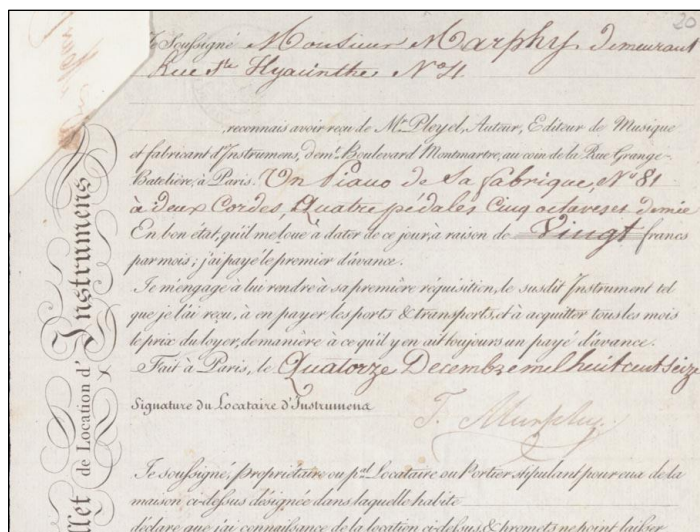 20
Je Soussigné Monsieur Marphy demeurant
Rue Ste Hyacinthe N° 4
reconnais avoir reçu de Mr. Pleyel, Auteur, Editeur de Musique
et fabricant d'Instrumens, demt. Boulevard Montmartre, au coin de la Rue Grange-
Batelière, à Paris. Un Piano de Sa fabrique, N° 81
à deux Cordes, Quatre pédales Cinq octaves et demie
En bon état, qu'il me loue à dater de ce jour, à raison de Vingt francs
par mois ; j'ai payé le premier d'avance.
Je m'engage à lui rendre à sa première réquisition, le susdit Instrument tel
que je l'ai reçu, à en payer les ports & transports, et à acquitter tous les mois
le prix du loyer, de manière à ce qu'il y en ait toujours un payé d'avance.
Fait à Paris, le Quatorze Decembre mil huit cent Seize
Signature du Locataire d'Instrumens
T. Murphy
Je soussigné, propriétaire ou pal. Locataire ou Portier stipulant pour eux de la
maison ci-dessus désignée dans laquelle habite
déclare que j'ai connaissance de la location ci-dessus, & promets ne point laisser
llet de Location d'Instrumens